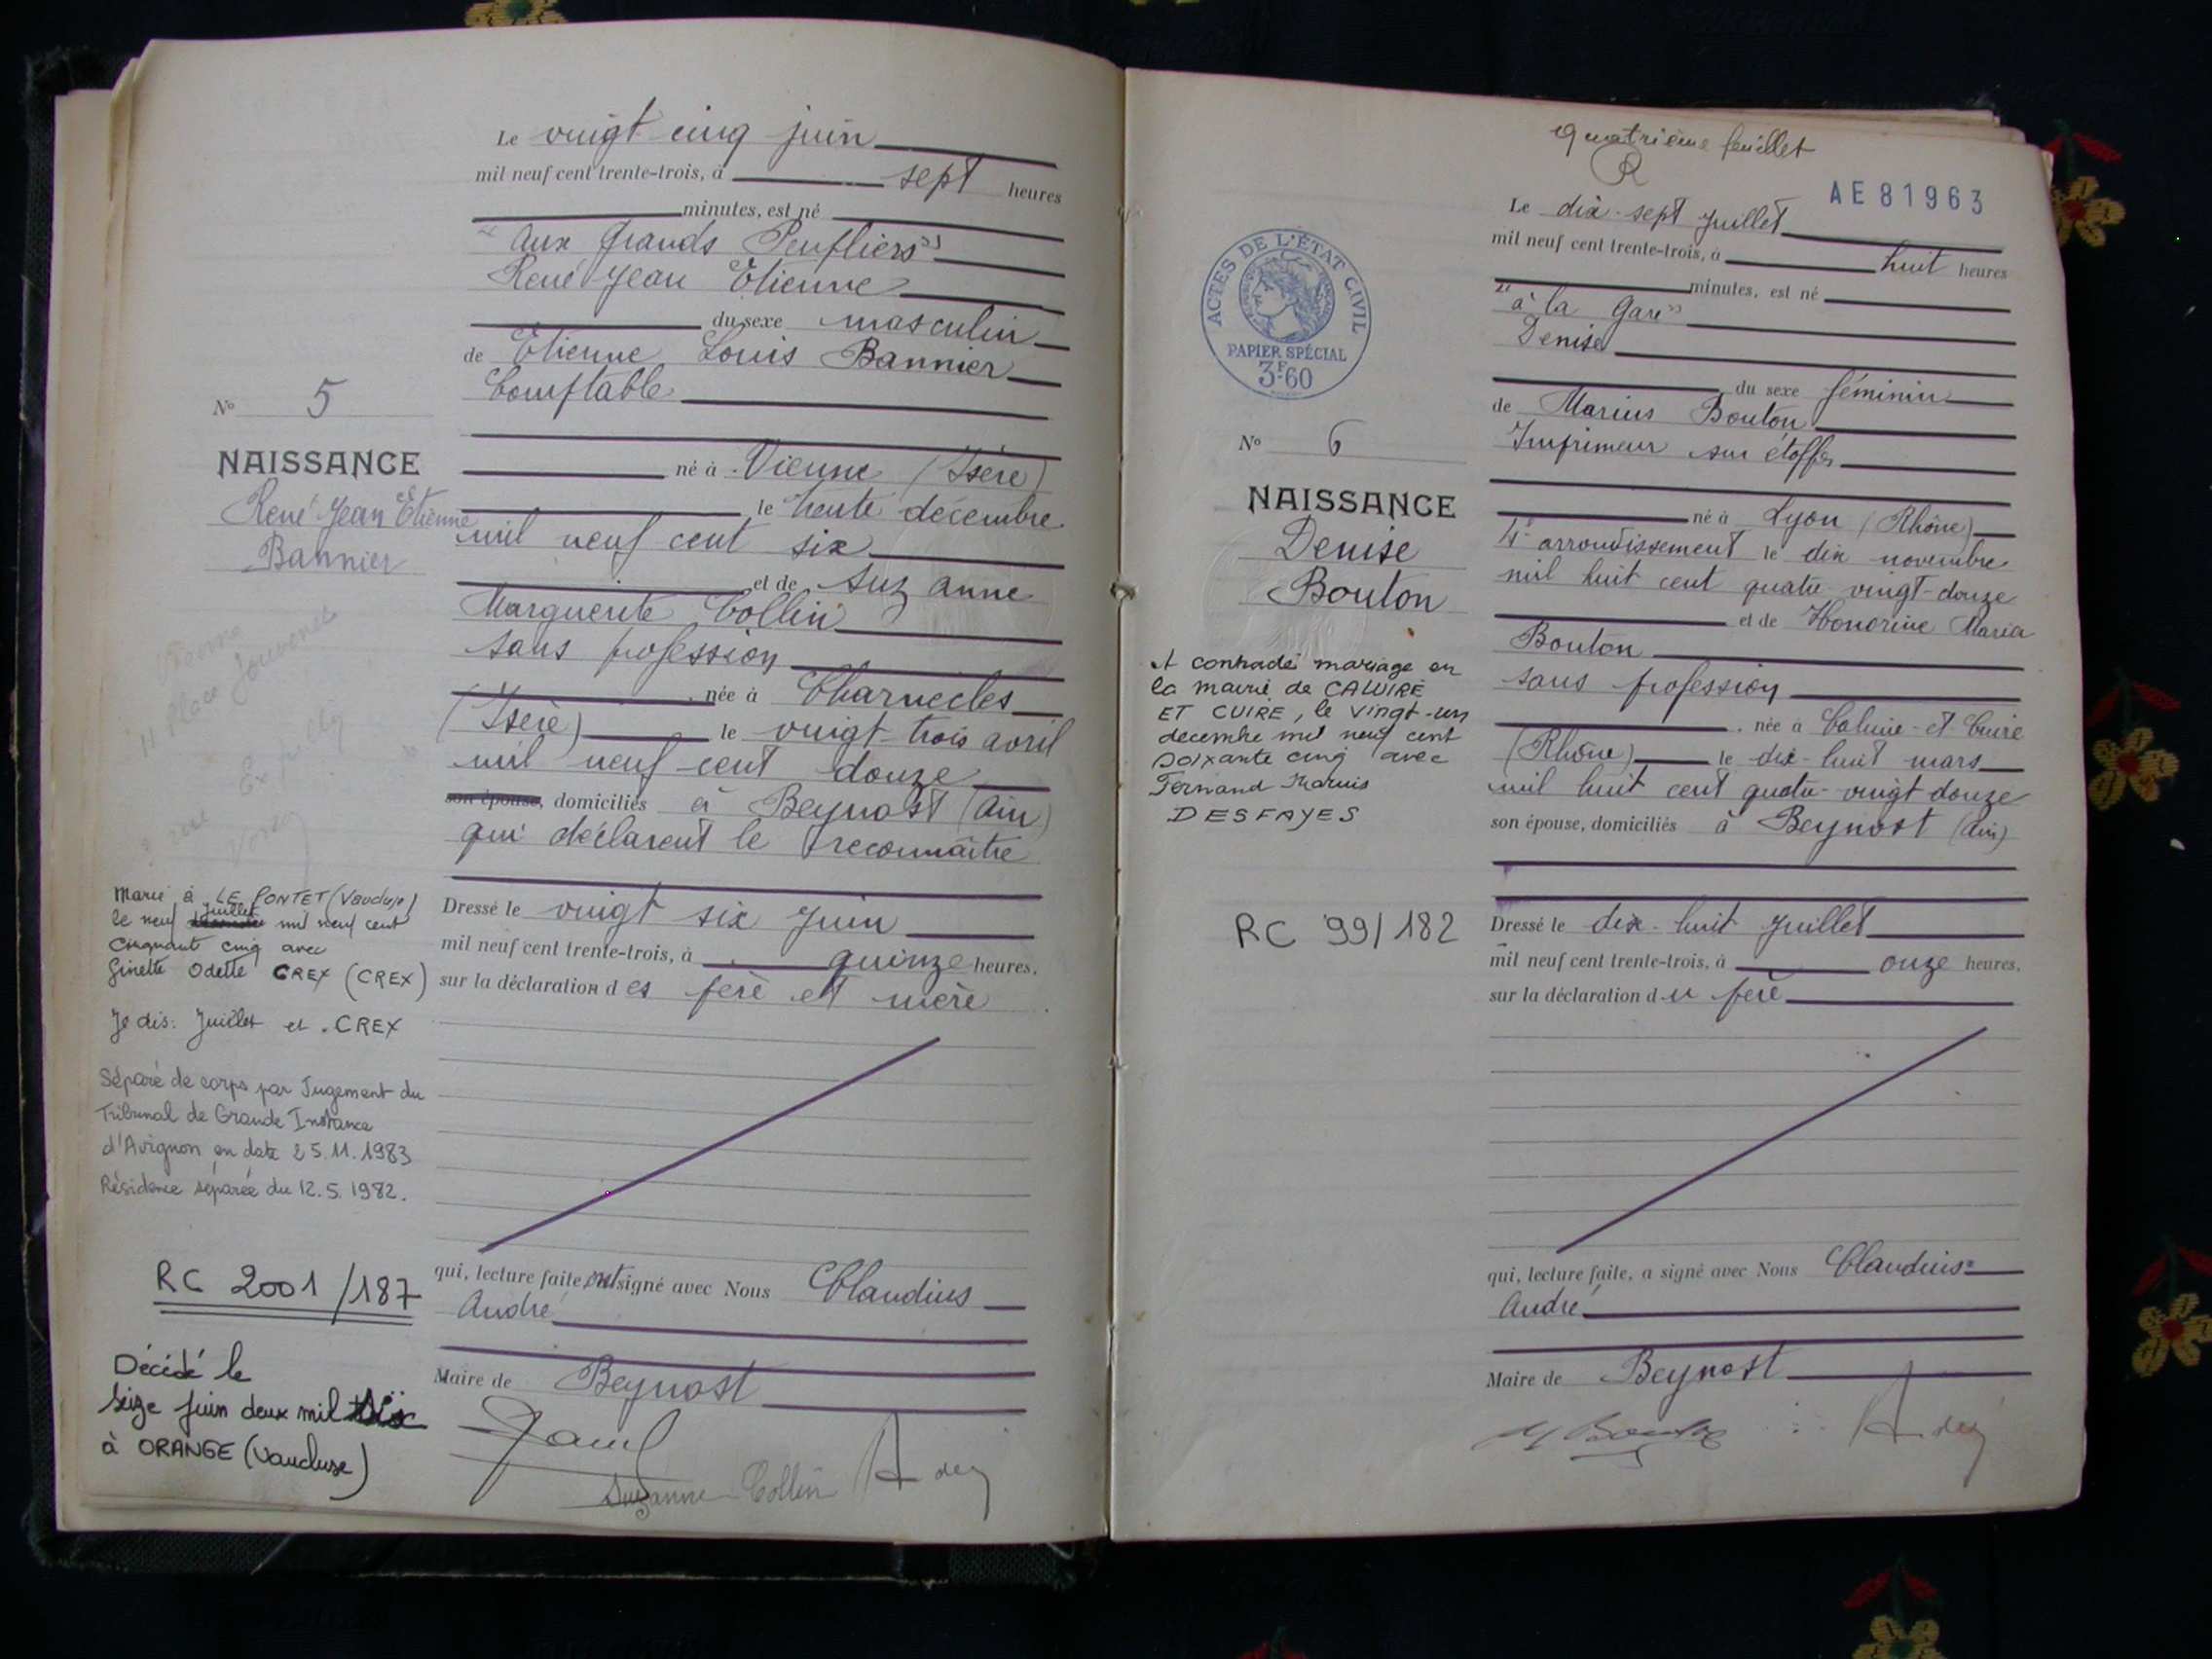 Le vingt cinq juin
mil neuf cent trente-trois, à sept heures
minutes, est né
"Aux Grands Peupliers"
René Jean Etienne
du sexe masculin
de Etienne Louis Bannier
Comptable
né à Vienne (Isère)
le trente décembre
mil neuf cent six
et de Suzanne
Marguerite Collin
sans profession
née à Charnècles
(Isère) le vingt-trois avril
mil neuf cent douze
son épouse, domiciliés à Beynost (Ain)
qui déclarent le reconnaître
Dressé le vingt six juin
mil neuf cent trente-trois, à quinze heures,
sur la déclaration des père et mère
qui, lecture faite, ont signé avec Nous Claudius
André
Maire de Beynost
Suzanne Collin
N° 5
NAISSANCE
René Jean Etienne
Bannier
place Jouvenet
Marié à LE PONTET (Vaucluse)
le neuf juillet mil neuf cent
cinquant cinq avec
Ginette Odette CREX (CREX)
Je dis: Juillet et . CREX
Séparé de corps par Jugement du
Tribunal de Grande Instance
d'Avignon en date 25.11.1983
Résidence séparée du 12.5.1982.
RC 2001/187
Décédé le
seize juin deux mil
à ORANGE (Vaucluse)
Quatrième feuillet
AE81963
Le dix-sept juillet
mil neuf cent trente-trois, à huit heures
minutes, est né
"à la Gare"
Denise
du sexe féminin
de Marius Bouton
Imprimeur sur étoffes
né à Lyon (Rhône)
4e arrondissement le dix novembre
mil huit cent quatre-vingt-douze
et de Honorine Maria
Bouton
sans profession
née à Caluire-et-Cuire
(Rhône) le dix-huit mars
mil huit cent quatre-vingt douze
son épouse, domiciliés à Beynost (Ain)
Dressé le dix-huit juillet
mil neuf cent trente-trois, à onze heures,
sur la déclaration du père
qui, lecture faite, a signé avec Nous Claudius
André
Maire de Beynost
M Bouton
ACTES DE L'ÉTAT CIVIL
PAPIER SPÉCIAL
3F60
N° 6
NAISSANCE
Denise
Bouton
A contracté mariage en
la mairie de CALUIRE
ET CUIRE, le vingt-un
decembre mil neuf cent
soixante cinq avec
Fernand Marius
DESFAYES
RC 99/182